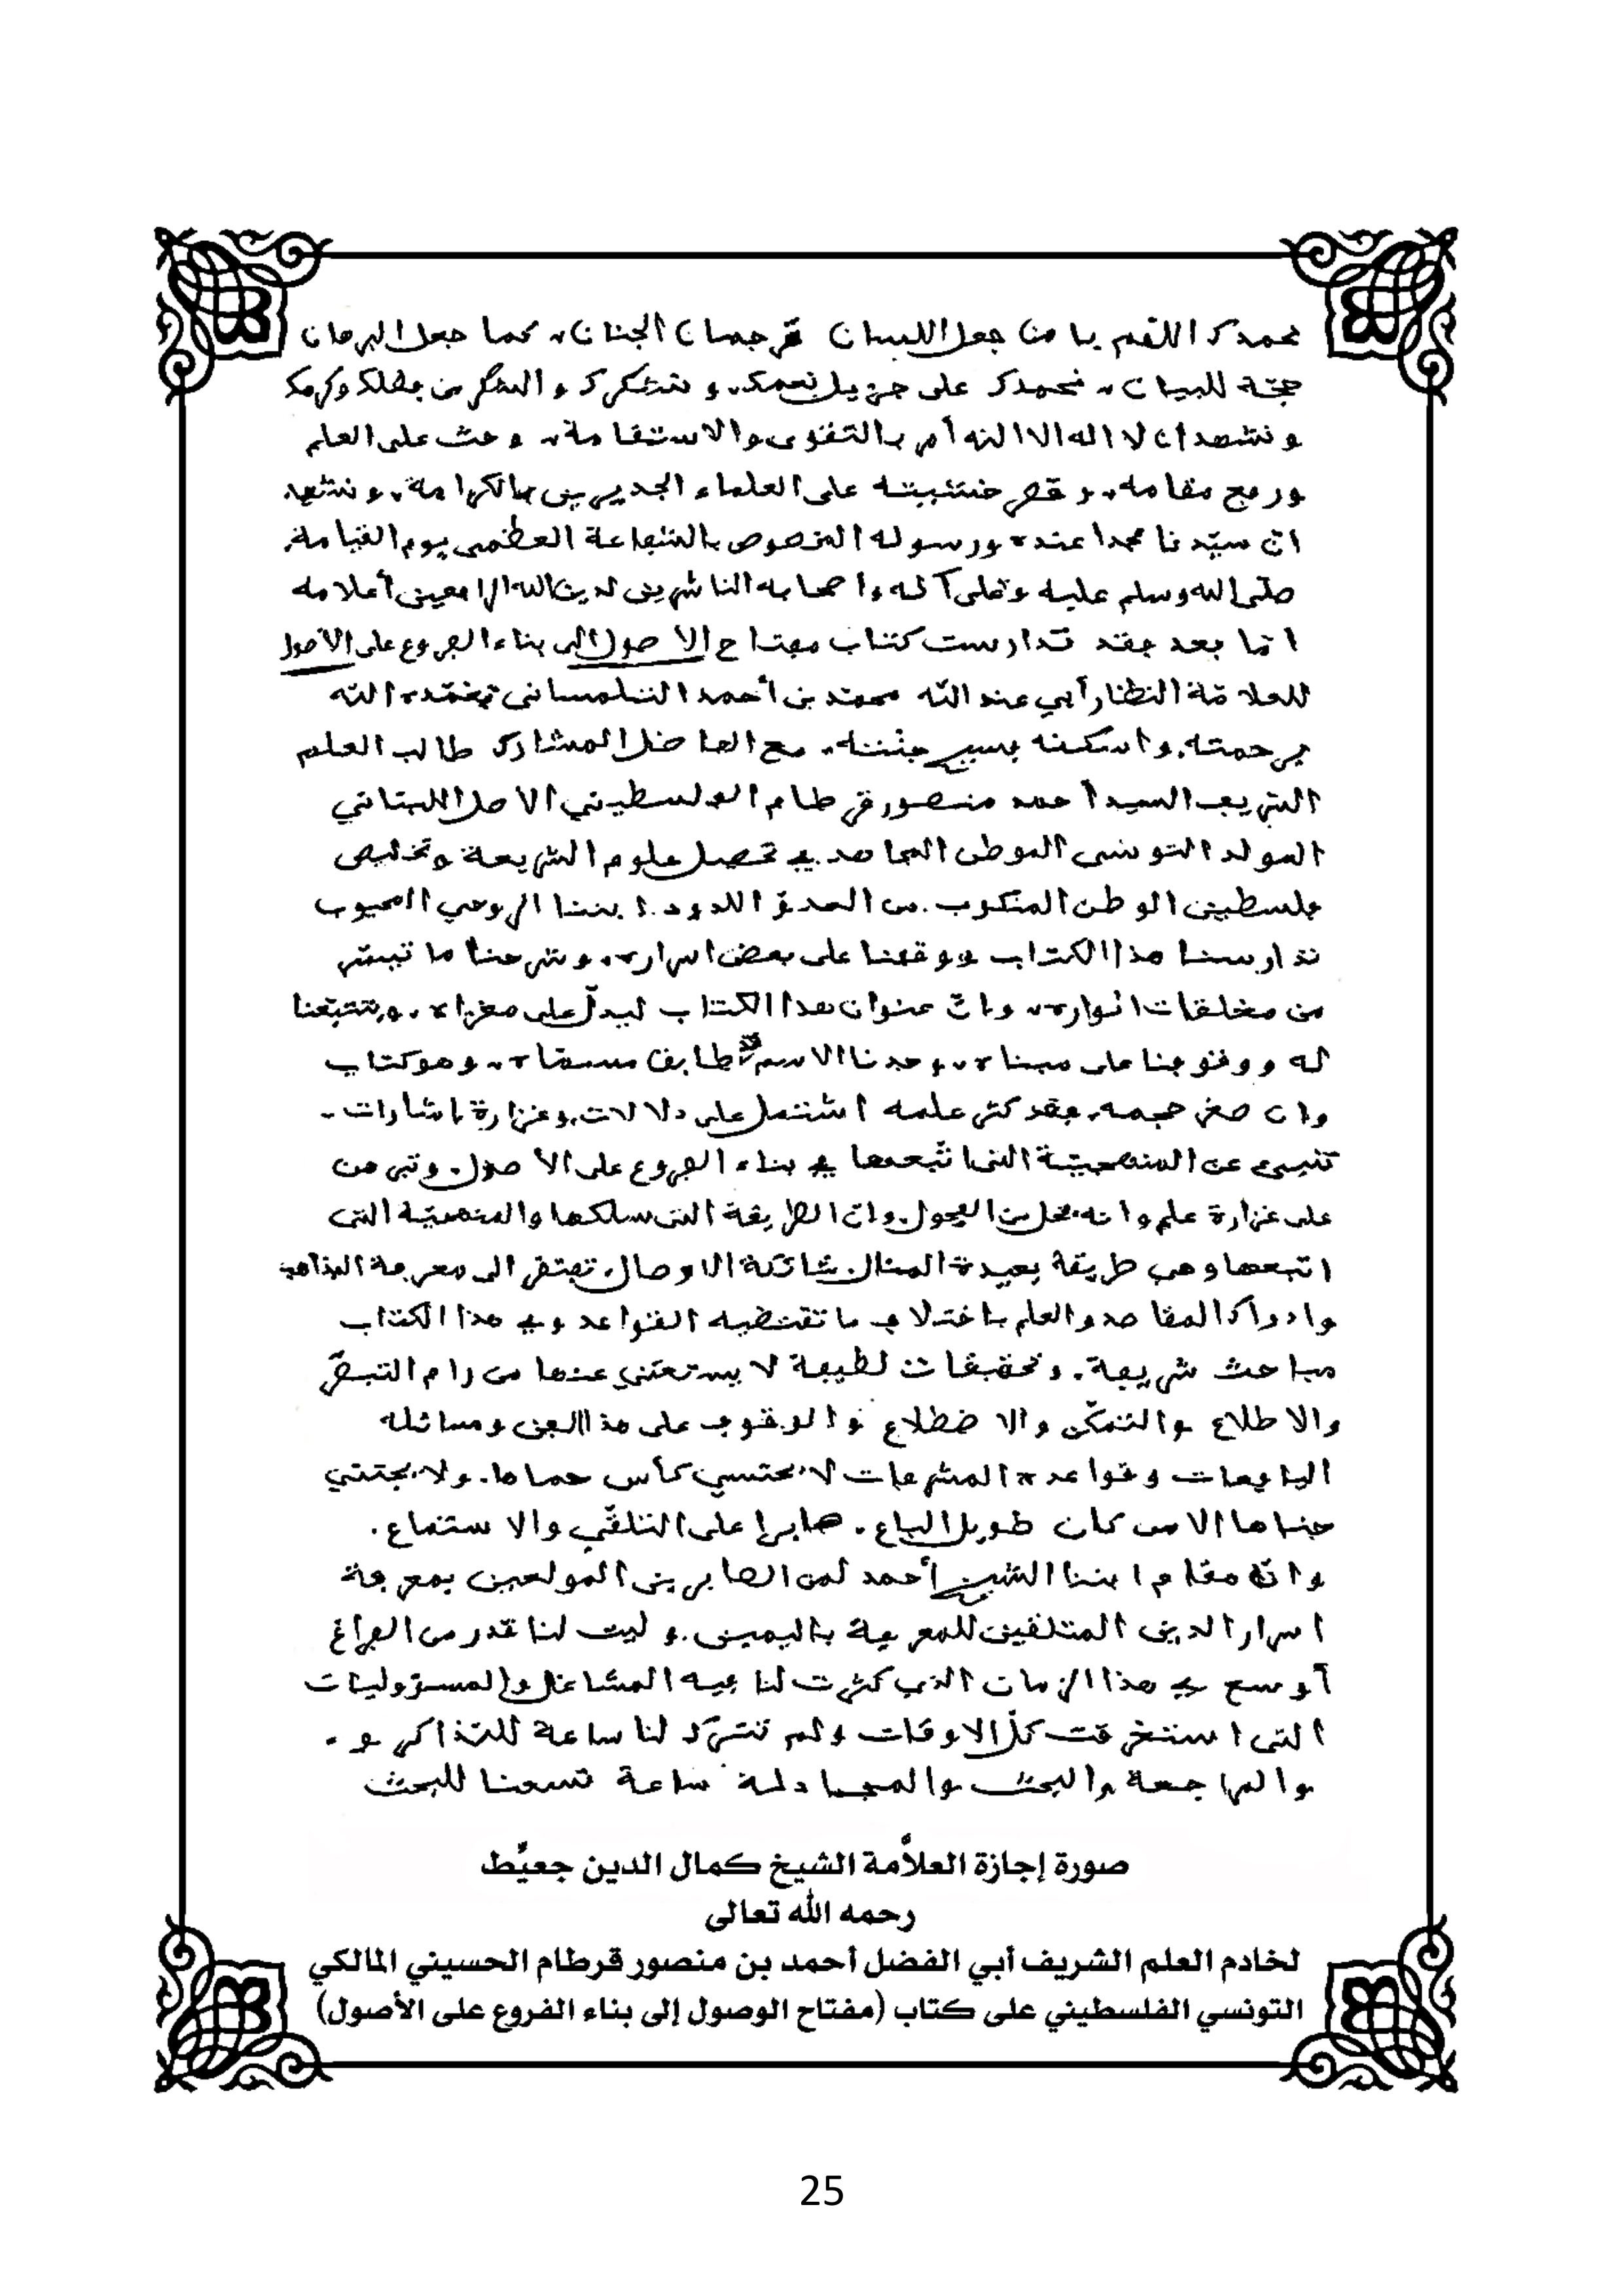 نحمدك اللهم يا من جعل اللسان ترجمان الجنان، كما جعل البرهان
حجّة للبيان، نحمدك على جزيل نعمك، ونشكرك والشكر من فضلك وكرمك
ونشهد أن لا اله الا الله أمر بالتقوى والاستقامة، وحث على العلم
ورفع مقامه، وقصر خشيته على العلماء الجديرين بالكرامة، ونشهد
انّ سيّدنا محمدا عبده ورسوله المخصوص بالشفاعة العظمى يوم القيامة،
صلّى الله وسلم عليه وعلى آله واصحابه الناشرين لدين الله الرافعين أعلامه
امّا بعد فقد تدارست كتاب مفتاح الاصول الى بناء الفروع على الأصول
للعلامّة النظار أبي عبد الله محمّد بن أحمد التلمساني تغمّده الله
برحمته، واسكنه فسيح جنّته، مع الفاضل المشارك طالب العلم
الشريف السيد أحمد منصور قرطام الفلسطيني الاصل اللبناني
المولد التونسي الموطن المجاهد في تحصيل علوم الشريعة وتخليص
فلسطين الوطن المنكوب من العدوّ اللدود، ابننا الروحي المحبوب
تدارسنا هذا الكتاب ووقفنا على بعض اسراره، وشرحنا ما تيسّر
من مغلقات انواره، وانّ عنوان هذا الكتاب ليدلّ على مغزاه، وبتتبّعنا
له ووقوفنا على مبناه، وجدنا الاسم قد طابق مسمّاه، وهو كتاب
وان صغر حجمه، فقد كثر علمه اشتمل على دلالات، وغزارة اشارات
تنبىء عن المنهجيّة التي اتّبعها في بناء الفروع على الأصول، وتبرهن
على غزارة علم وانه فحل من الفحول، وانّ الطريقة التي سلكها والمنهجيّة التي
اتبعها وهي طريقة بعيدة المنال شائكة الاوصال، تفتقر الى معرفة المذاهب
وادراك المقاصد والعلم باختلاف ما تقتضيه القواعد وفي هذا الكتاب
مباحث شريفة، وتحقيقات لطيفة لا يستغني عنها من رام التبصّر
والاطلاع والتمكّن والاضطلاع والوقوف على هذا الفن ومسائله
اليافعات وقواعده المشرعات لا يحتسي كأس حماها، ولا يجتني
جناها الا من كان طويل الباع، صابرا على التلقّي والاستماع.
وانّ مقام ابننا الشيخ أحمد لمن الصابرين المولعين بمعرفة
اسرار الدين المتلقين للمعرفة باليمين، وليت لنا قدر من الفراغ
أوسع في هذا الزمان الذي كثرت لنا فيه المشاغل والمسؤوليات
التي استغرقت كلّ الاوقات ولم تترك لنا ساعة للتذاكر و
والمراجعة والبحث والمجادلة ساعة تسعنا للبحث
صورة إجازة العلاَّمة الشيخ كمال الدين جعيِّط
رحمه الله تعالى
لخادم العلم الشريف أبي الفضل أحمد بن منصور قرطام الحسيني المالكي
التونسي الفلسطيني على كتاب (مفتاح الوصول إلى بناء الفروع على الأصول)
25